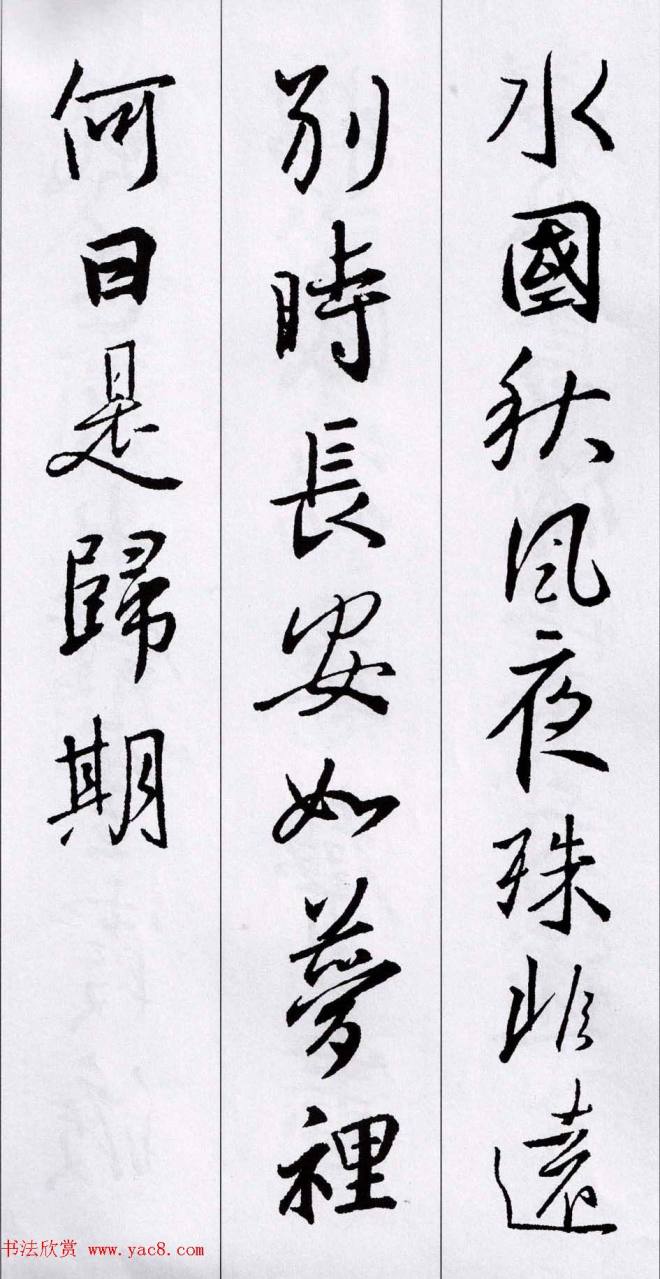 水國秋風夜殊非遠
別時長安如夢裡
何日是歸期
书法欣赏 www.yac8.com